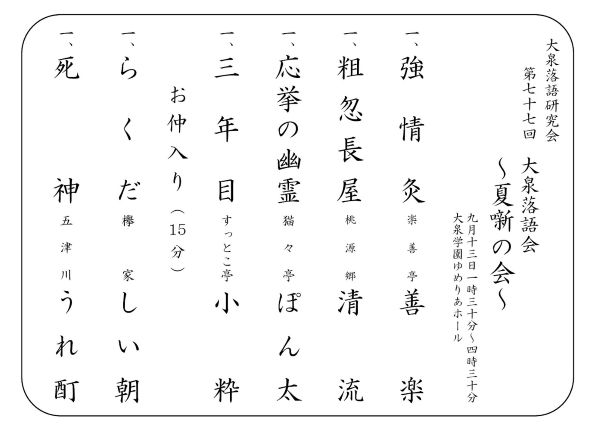 大泉落語研究会
第七十七回 大泉落語会
～夏噺の会～
九月十三日一時三十分～四時三十分
大泉学園ゆめりあホール
一、強情灸 楽善亭善楽
一、粗忽長屋 桃源郷清流
一、応挙の幽霊 猫々亭ぽん太
一、三年目 すっとこ亭小粋
お仲入り（15分）
一、らくだ 欅家しい朝
一、死神 五津川うれ酊